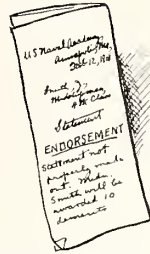 U S Naval Academy
Annapolis, Md.,
Feb. 12, 1911
Smith J.
Midshipman,
4th Class
Statement
ENDORSEMENT
Statement not
properly made
out. Midn.
Smith will be
awarded 10
demerits